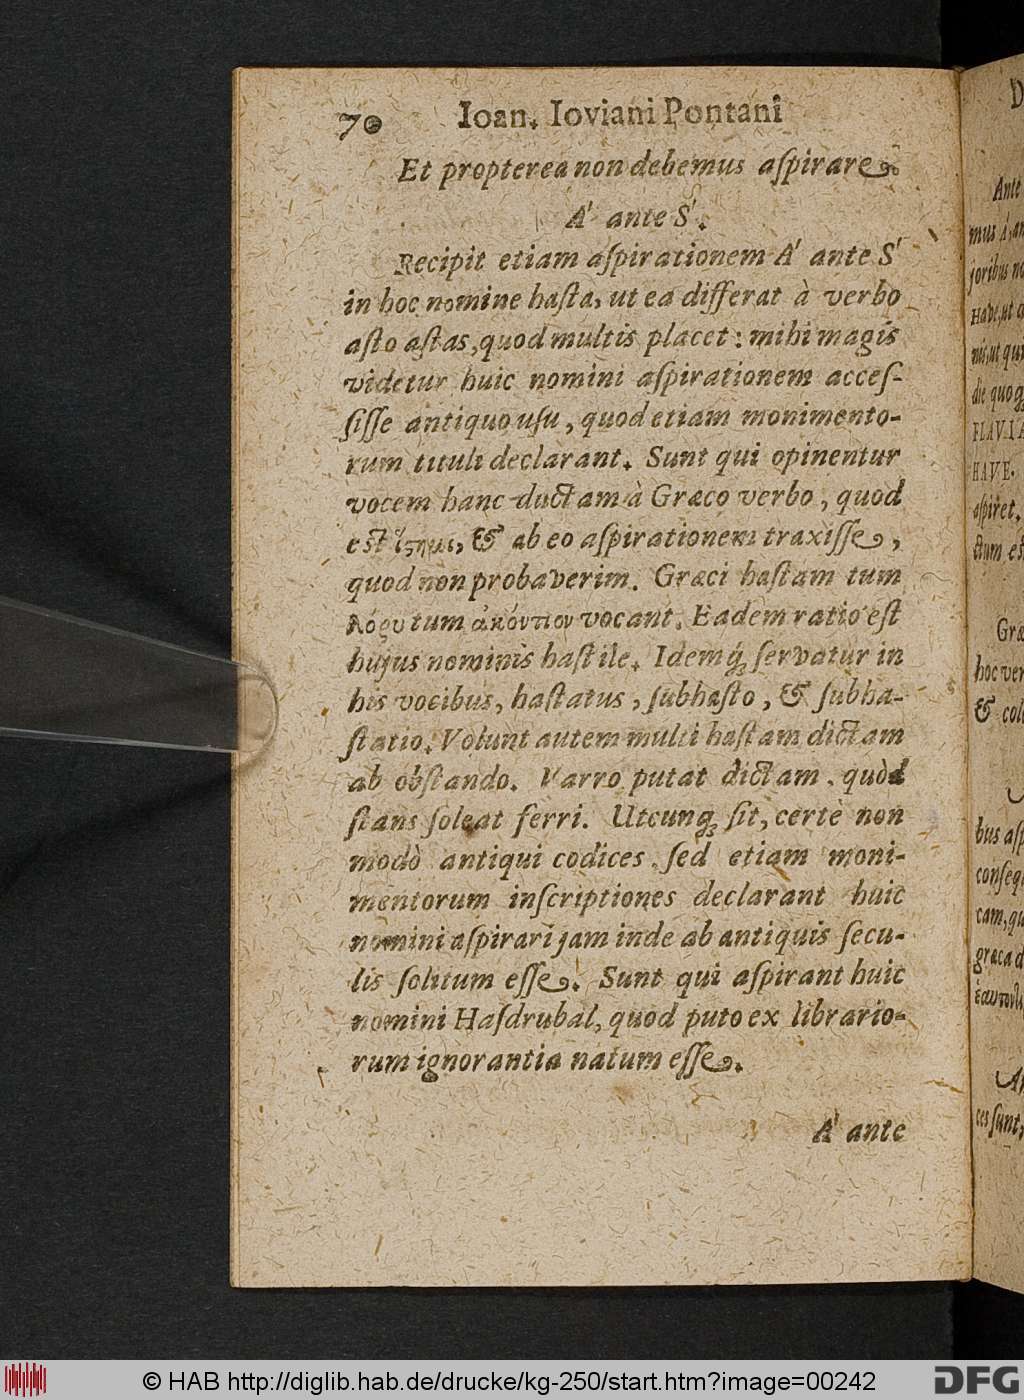 70 Ioan. Ioviani Pontani
Et propterea non debemus aſpirare.
A' ante S'.
Recipit etiam aſpirationem A' ante S'
in hoc nomine haſta, ut ea differat à verbo
aſto aſtas, quod multis placet: mihi magis
videtur huic nomini aſpirationem acceſ-
ſiſſe antiquo uſu, quod etiam monimento-
rum tituli declarant. Sunt qui opinentur
vocem hanc ductam à Græco verbo, quod
eſt ἵϛημι, & ab eo aſpirationem traxiſſe,
quod non probaverim. Græci haſtam tum
δόρυ tum ἀκόντιον vocant. Eadem ratio eſt
hujus nominis haſtile. Idemq́; ſervatur in
his vocibus, haſtatus, ſubhaſto, & ſubha-
ſtatio. Volunt autem multi haſtam dictam
ab obſtando. Varro putat dictam. quòd
ſtans ſoleat ferri. Utcunq; ſit, certè non
modò antiqui codices. ſed etiam moni-
mentorum inſcriptiones declarant huic
nomini aſpirari jam inde ab antiquis ſecu-
lis ſolitum eſſe. Sunt qui aſpirant huic
nomini Haſdrubal, quod puto ex librario-
rum ignorantia natum eſſe.
A' ante
Ante
mus A, an
joribus
Have, ut
nis, ut qui
die quoq;
FLAVIA
HAVE.
aſpiret.
ctum eſt
Græ
hoc ver
& col
bus aſp
conſequ
cam, qu
græca d
ces ſunt,
© HAB http://diglib.hab.de/drucke/kg-250/start.htm?image=00242
DFG